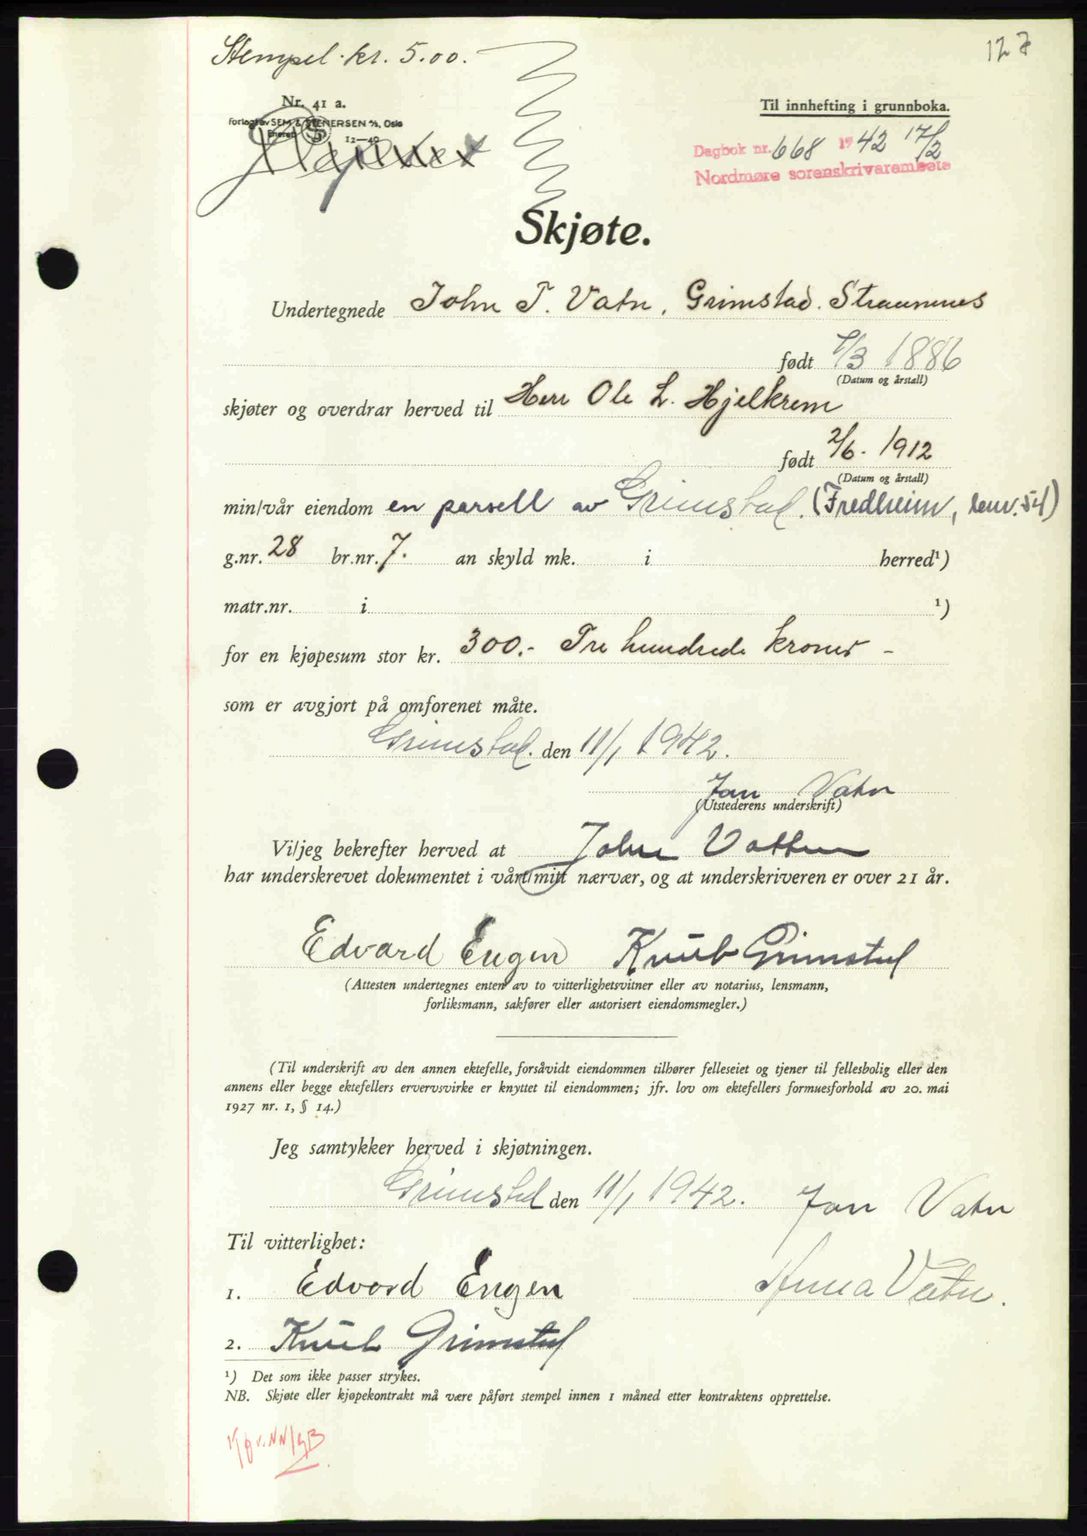 Stempel. kr. 5.00.
127
Nr. 41 a.
Forlagt av SEM & STENERSEN A/S, Oslo
Eneret 12-40
Til innhefting i grunnboka.
Dagbok nr. 668 1942 17/2
Nordmøre sorenskriverembete
Skjøte.
Undertegnede John T. Vatn, Grimstad. Straumnes
født 7/3 1886
(Datum og årstall)
skjøter og overdrar herved til Herr Ole L. Hjelkrem
født 2/6. 1912
(Datum og årstall)
min/vår eiendom en parsell av Grimstad. (Fredheim, lnr. 54)
g.nr. 28 br.nr. 7. an skyld mk. i herred¹)
matr.nr. i ¹)
for en kjøpesum stor kr. 300.- Tre hundrede kroner -
som er avgjort på omforenet måte.
Grimstad. den 11/1 1942.
Jon Vatn
(Utstederens underskrift)
Vi/jeg bekrefter herved at John Vatten
har underskrevet dokumentet i vårt/mitt nærvær, og at underskriveren er over 21 år.
Edvard Engen Knut Grimstad
(Attesten undertegnes enten av to vitterlighetsvitner eller av notarius, lensmann,
forliksmann, sakfører eller autorisert eiendomsmegler.)
(Til underskrift av den annen ektefelle, forsåvidt eiendommen tilhører felleseiet og tjener til fellesbolig eller den
annens eller begge ektefellers ervervsvirke er knyttet til eiendommen; jfr. lov om ektefellers formuesforhold av 20. mai
1927 nr. 1, § 14.)
Jeg samtykker herved i skjøtningen.
Grimstad den 11/1 1942. Jon Vatn
Til vitterlighet:
1. Edvard Engen Anna Vatn.
2. Knut Grimstad
¹) Det som ikke passer strykes.
NB. Skjøte eller kjøpekontrakt må være påført stempel innen 1 måned etter kontraktens opprettelse.